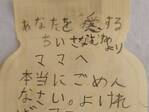 あなたを愛する
ちいさなむすめより
ママへ
本当にごめん
なさい。よけれ